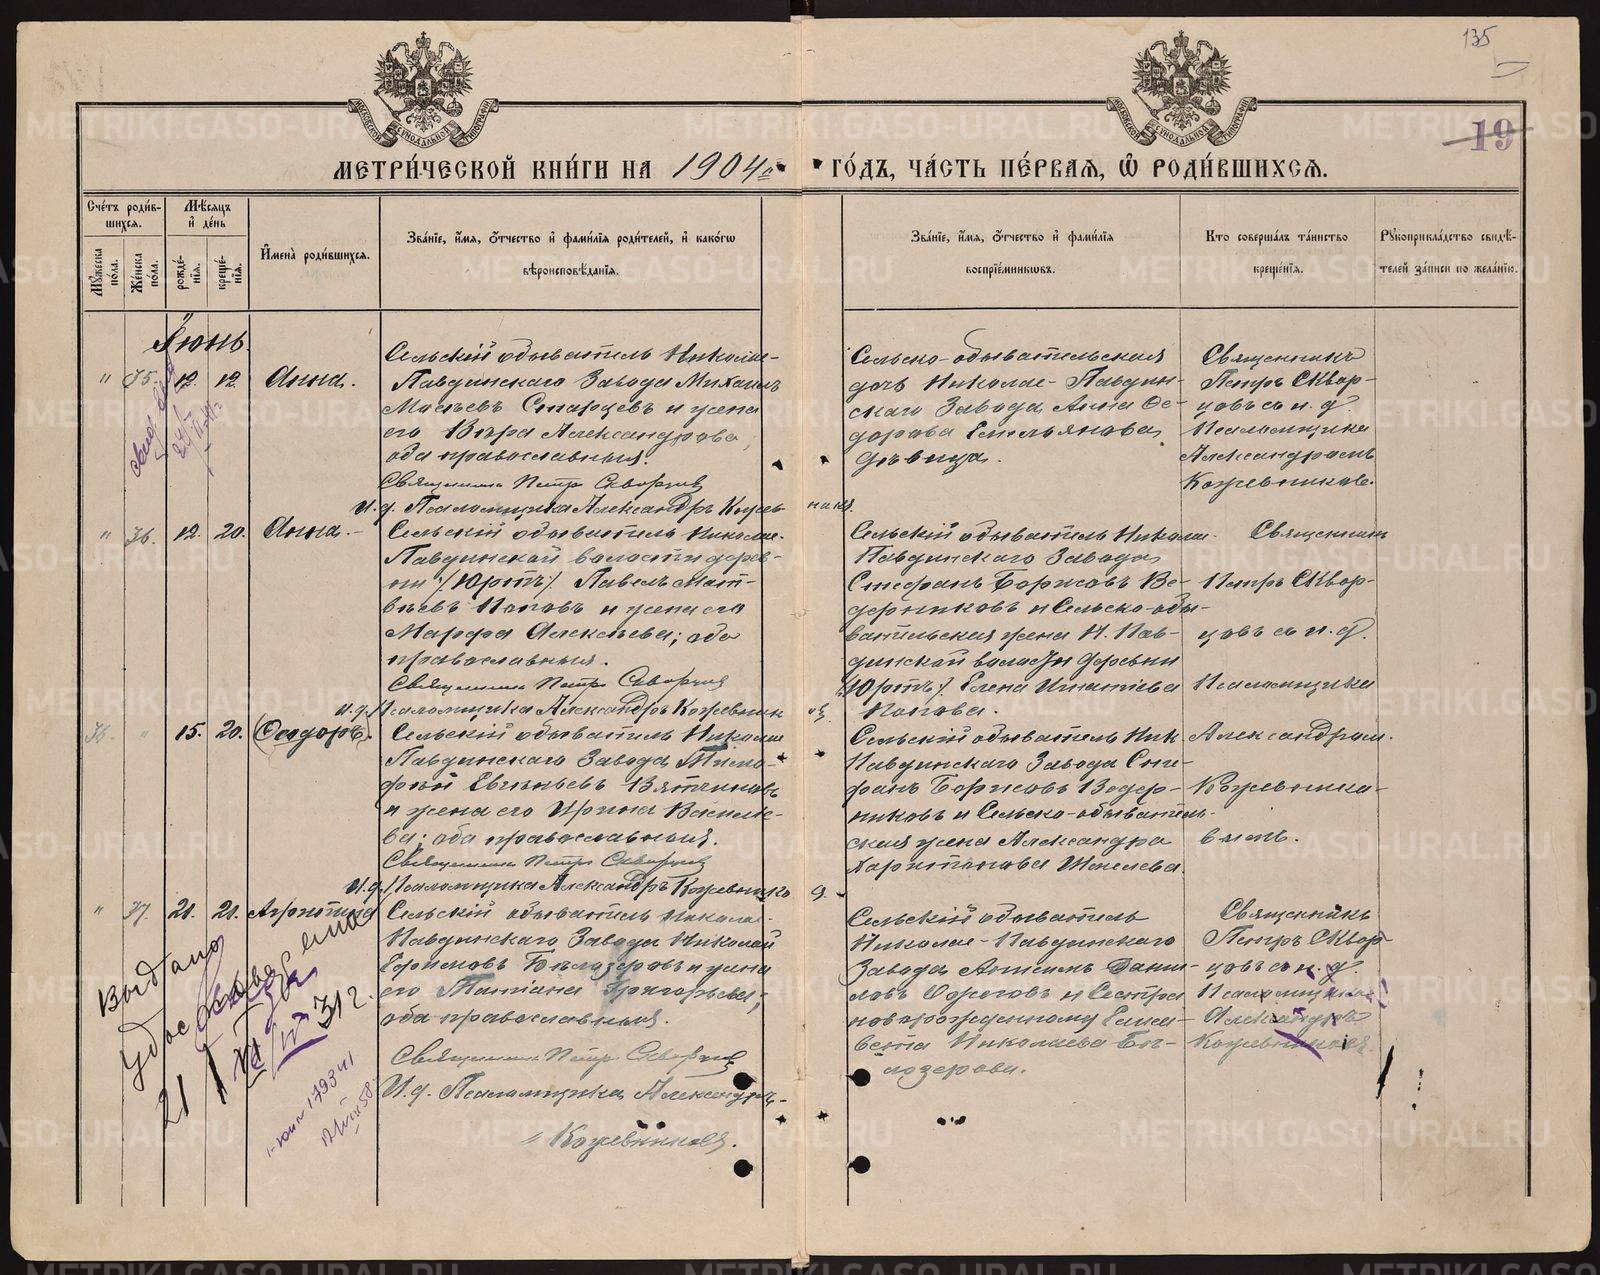 135
19
МЕТРИ́ЧЕСКОЙ КНИ́ГИ НА 1904 ГО́ДЪ, ЧА́СТЬ ПЕ́РВАЯ, Ѡ҆ РОДИ́ВШИХСѦ.
Сче́тъ роди́вшихся.
Мѣ́сяцъ и де́нь
Мꙋ́жеска по́ла.
Же́нска по́ла.
рожде́нїя.
креще́нїя.
И҆мена̀ роди́вшихся.
Зва́нїе, и҆́мя, о҆́тчество и҆ фами́лїя роди́телей, и҆ како́гѡ вѣроисповѣ́данїя.
Зва́нїе, и҆́мя, о҆́тчество и҆ фами́лїя воспрїе́мникѡвъ.
Кто соверша́лъ та́инство креще́нїя.
Рꙋкоприкла́дство свидѣ́телей за́писи по жела́нїю.
Іюнь.
" 75. 12. 12. Анна.
Сельскій обыватель Николае-
Павдинскаго Завода Михаилъ
Старцевъ и жена
его Вѣра Александрова,
оба православныя.
Священникъ Петръ Скворцовъ
И. д. Псаломщика Александръ Кожевниковъ
Сельско-обывательская
дочь Николае-Павдин-
скаго Завода Анна Ѳе-
дорова Емельянова,
дѣвица.
Священникъ
Петръ Сквор-
цовъ съ и. д.
Псаломщика
Александромъ
Кожевниковъ.
" 76. 12. 20. Анна.
Сельскій обыватель Николае-
Павдинской волости дерев-
ни /Юртъ/ Павелъ Мат-
вѣевъ Поповъ и жена его
Марѳа Алексѣева; оба
православныя.
Священникъ Петръ Скворцовъ
и. д. Псаломщика Александръ Кожевниковъ
Сельскій обыватель Николае-
Павдинскаго Завода
Стефанъ Борисовъ Ве-
дерниковъ и Сельско-обы-
вательская жена Н. Пав-
динской волости деревни
/Юртъ/ Елена Игнатіева
Попова.
Священникъ
Петръ Сквор-
цовъ съ и. д.
Псаломщика
Александромъ
Кожевнико-
вымъ.
76. " 15. 20. (Ѳеодоръ).
Сельскій обыватель Николае
Павдинскаго Завода Тимо-
фей Евгеньевъ Вяткинъ
и жена его Ирина Василье-
ва; оба православныя.
Священникъ Петръ Скворцовъ
И. д. Псаломщика Александръ Кожевников
Сельскій обыватель Ник.
Павдинскаго Завода Сте-
фанъ Борисовъ Ведер-
никовъ и Сельско-обыватель-
ская жена Александра
Харитонова
" 77. 21. 21. Агриппина
Сельскій обыватель Николае-
Павдинскаго Завода Николай
Ефимовъ Бѣлозеровъ и жена
его Татіана Григорьева;
оба православныя.
Священникъ Петръ Скворцовъ
И. д. Псаломщика Александръ
Кожевниковъ.
Сельскій обыватель
Николае-Павдинскаго
Завода Дани-
ловъ и Сестра
новорожденному Елиса-
вета Николаева Бѣ-
лозерова.
Священникъ
Петръ Сквор-
цовъ съ и. д.
Псаломщика
Александръ
Кожевниковъ.
Выдано
21 31 г.
METRIKI.GASO-URAL.RU